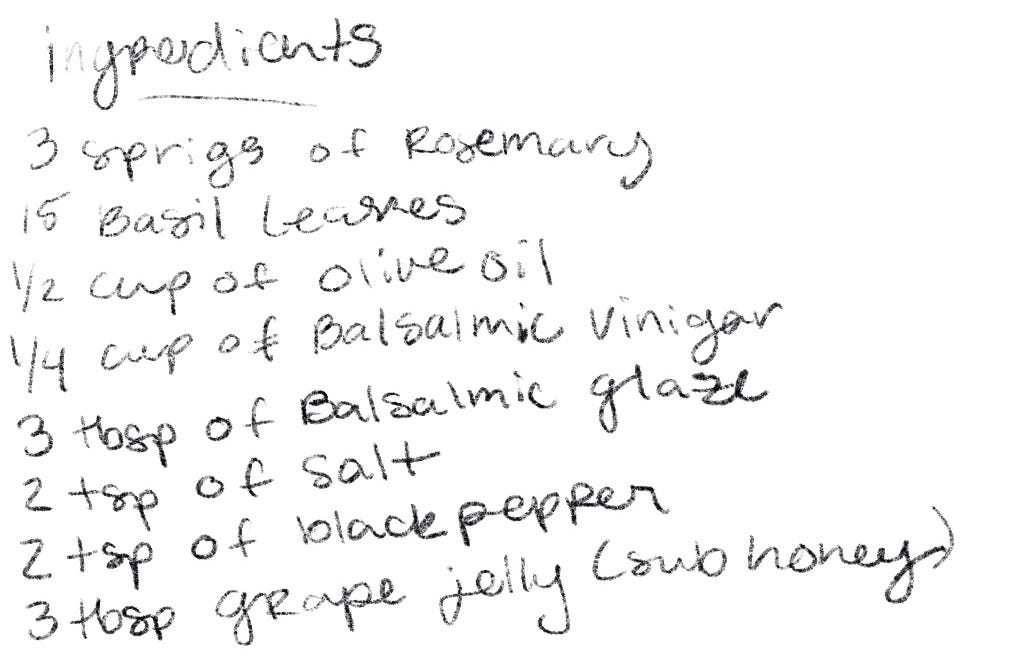 ingredients
3 sprigs of Rosemary
15 Basil Leaves
1/2 cup of olive oil
1/4 cup of Balsalmic Vinigar
3 tbsp of Balsalmic glaze
2 tsp of salt
2 tsp of black pepper
3 tbsp grape jelly (sub honey)